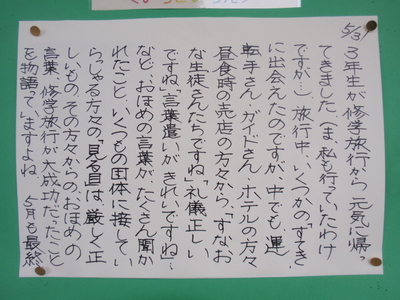 5/31
3年生が修学旅行から元気に帰っ
てきました(ま、私も行っていたわけ
ですが…)。旅行中、いくつかの「すてき」
に出会えたのですが、中でも運
転手さん、ガイドさん、ホテルの方々、
昼食時の売店の方々から、「すなお
な生徒さんたちですね」「礼儀正しい
ですね」「言葉遣いがきれいですね」…
など、おほめの言葉がたくさん聞か
れたこと。いくつもの団体に接してい
らっしゃる方々の「見る目」は、厳しく正
しいもの。その方々からの、おほめの
言葉、修学旅行が大成功だったこと
を物語っていますよね。 5月も最終